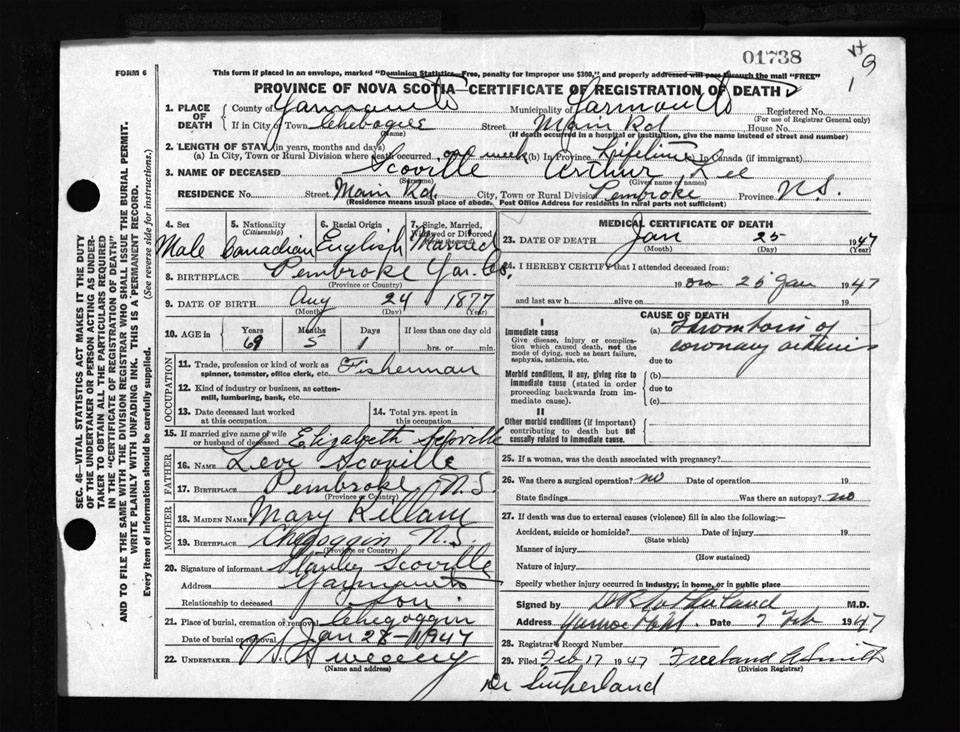 01738
FORM 6
This form if placed in an envelope, marked "Dominion Statistics—Free, penalty for improper use $300," and properly addressed will pass through the mail "FREE"
PROVINCE OF NOVA SCOTIA—CERTIFICATE OF REGISTRATION OF DEATH
1. PLACE OF DEATH
County of Yarmouth Municipality of Yarmouth Registered No.
(For use of Registrar General only)
If in City or Town Chebogue Street Main Rd House No.
(Name) (If death occurred in a hospital or institution, give the name instead of street and number)
2. LENGTH OF STAY (in years, months and days)
(a) In City, Town or Rural Division where death occurred one week (b) In Province Lifetime (c) In Canada (if immigrant)
3. NAME OF DECEASED Scoville Arthur Lee
(Surname) (Given name or names)
RESIDENCE No. Street Main Rd. City, Town or Rural Division Pembroke Province N.S.
(Residence means usual place of abode. Post Office Address for residents in rural parts not sufficient)
4. Sex Male
5. Nationality (Citizenship) Canadian
6. Racial Origin English
7. Single, Married, Widowed or Divorced (Write the word) Married
8. BIRTHPLACE Pembroke Yar. Co.
(Province or Country)
9. DATE OF BIRTH Aug 24 1877
(Month) (Day) (Year)
10. AGE in Years 69 Months 5 Days 1 If less than one day old hrs. or min.
OCCUPATION
11. Trade, profession or kind of work as spinner, teamster, office clerk, etc. Fisherman
12. Kind of industry or business, as cotton-mill, lumbering, bank, etc.
13. Date deceased last worked at this occupation.
14. Total yrs. spent in this occupation.
15. If married give name of wife or husband of deceased Elizabeth Scoville
FATHER
16. NAME Levi Scoville
17. BIRTHPLACE Pembroke N.S.
(Province or Country)
MOTHER
18. MAIDEN NAME Mary Killam
19. BIRTHPLACE Chegoggin N.S.
(Province or Country)
20. Signature of informant Stanley Scoville
Address Yarmouth
Relationship to deceased Son
21. Place of burial, cremation or removal Chegoggin
Date of burial or removal Jan 28-1947
22. UNDERTAKER Sweeny
(Name and address)
MEDICAL CERTIFICATE OF DEATH
23. DATE OF DEATH Jan 25 1947
(Month) (Day) (Year)
24. I HEREBY CERTIFY that I attended deceased from:
19 on 25 Jan 1947
and last saw h alive on 19
CAUSE OF DEATH
I
Immediate cause
Give disease, injury or complication which caused death, not the mode of dying, such as heart failure, asphyxia, asthenia, etc.
(a) Thrombosis of coronary arteries
due to
Morbid conditions, if any, giving rise to immediate cause (stated in order proceeding backwards from immediate cause).
(b)
due to
(c)
II
Other morbid conditions (if important) contributing to death but not causally related to immediate cause.
25. If a woman, was the death associated with pregnancy?
26. Was there a surgical operation? no Date of operation 19
State findings Was there an autopsy? no
27. If death was due to external causes (violence) fill in also the following:—
Accident, suicide or homicide? Date of injury 19
(State which)
Manner of injury
(How sustained)
Nature of injury
Specify whether injury occurred in industry, in home, or in public place
Signed by Sutherland M.D.
Address Date 7 Feb 1947
28. Registrar's Record Number
29. Filed Feb 17 1947 Freeland A Smith
(Division Registrar)
Dr Sutherland
SEC. 46—VITAL STATISTICS ACT MAKES IT THE DUTY
OF THE UNDERTAKER OR PERSON ACTING AS UNDER-
TAKER TO OBTAIN ALL THE PARTICULARS REQUIRED
IN THE "CERTIFICATE OF REGISTRATION OF DEATH"
AND TO FILE THE SAME WITH THE DIVISION REGISTRAR WHO SHALL ISSUE THE BURIAL PERMIT.
WRITE PLAINLY WITH UNFADING INK. THIS IS A PERMANENT RECORD.
Every item of information should be carefully supplied. (See reverse side for instructions.)